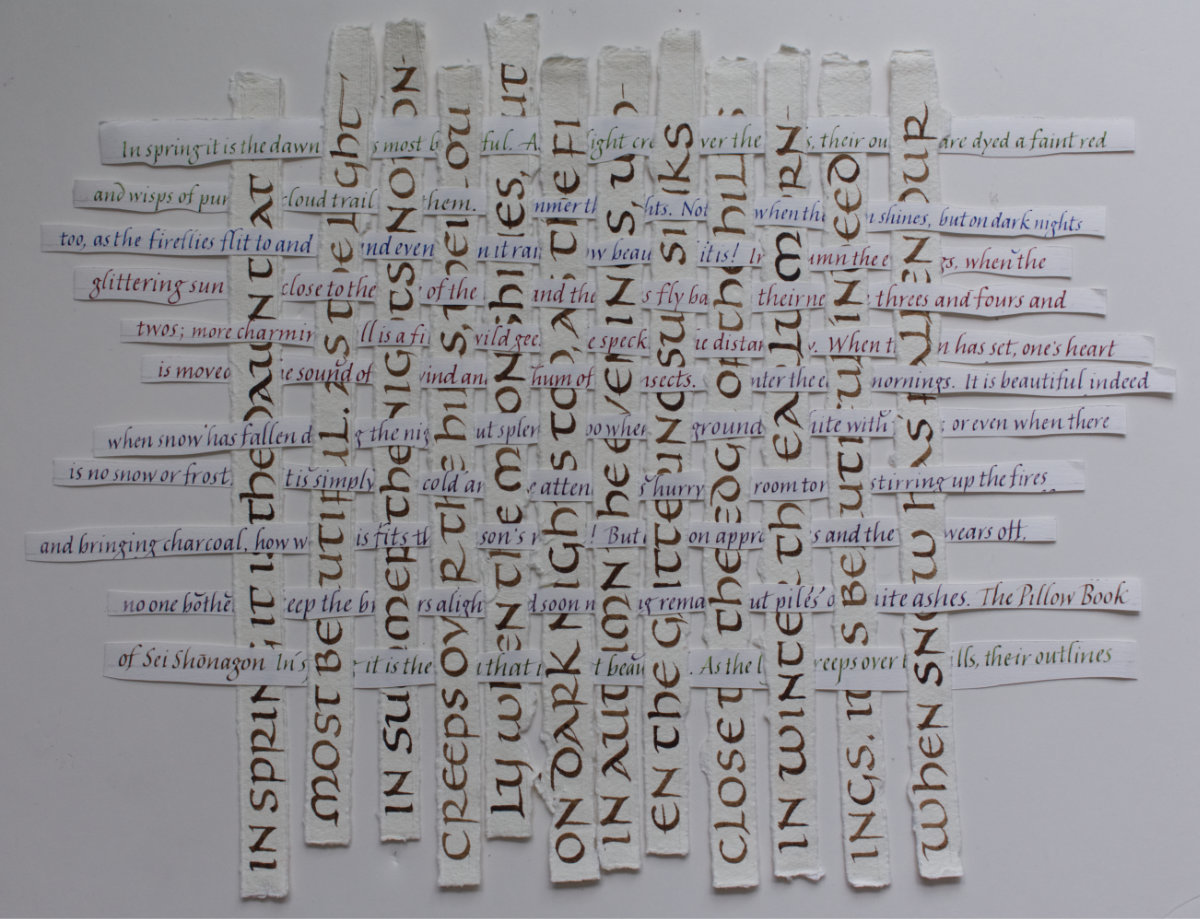 In spring it is the dawn most ful. A ight cre ver the s, their ou are dyed a faint red
and wisps of pur cloud trail them. nmer th hts. Not when the shines, but on dark nights
too, as the fireflies flit to and nd even n it rai w beau it is! In umn the e gs, when the
glittering sun close to the of the and the s fly ba their ne threes and fours and
twos; more charmin ll is a fi wild gee e speck e distan When t n has set, one's heart
is moved e sound of wind an hum of nsects. nter the e mornings. It is beautiful indeed
when snow has fallen d g the nig ut splen oo when ground ite with or even when there
is no snow or frost, t is simply cold an e atten s hurry room to r stirring up the fires
and bringing charcoal, how w is fits th son's m ! But on appro s and the wears off,
no one bothe eep the br rs aligh d soon n g rema ut piles o ite ashes. The Pillow Book
of Sei Shōnagon In s it is the that t beau . As the l reeps over t ills, their outlines
IN SPRING IT IS THE DAWN THAT
MOST BEAUTIFUL. AS THE LIGHT
IN SUMMER THE NIGHTS NOT ON-
CREEPS OVER THE HILLS, THEIR OU
LY WHEN THE MOON SHINES, BUT
ON DARK NIGHTS TOO, AS THE FI
IN AUTUMN THE EVENINGS, WH-
EN THE GLITTERING SUN SINKS
CLOSE TO THE EDGE OF THE HILLS
IN WINTER THE EARLY MORN-
INGS. IT IS BEAUTIFUL INDEED
WHEN SNOW HAS FALLEN DUR